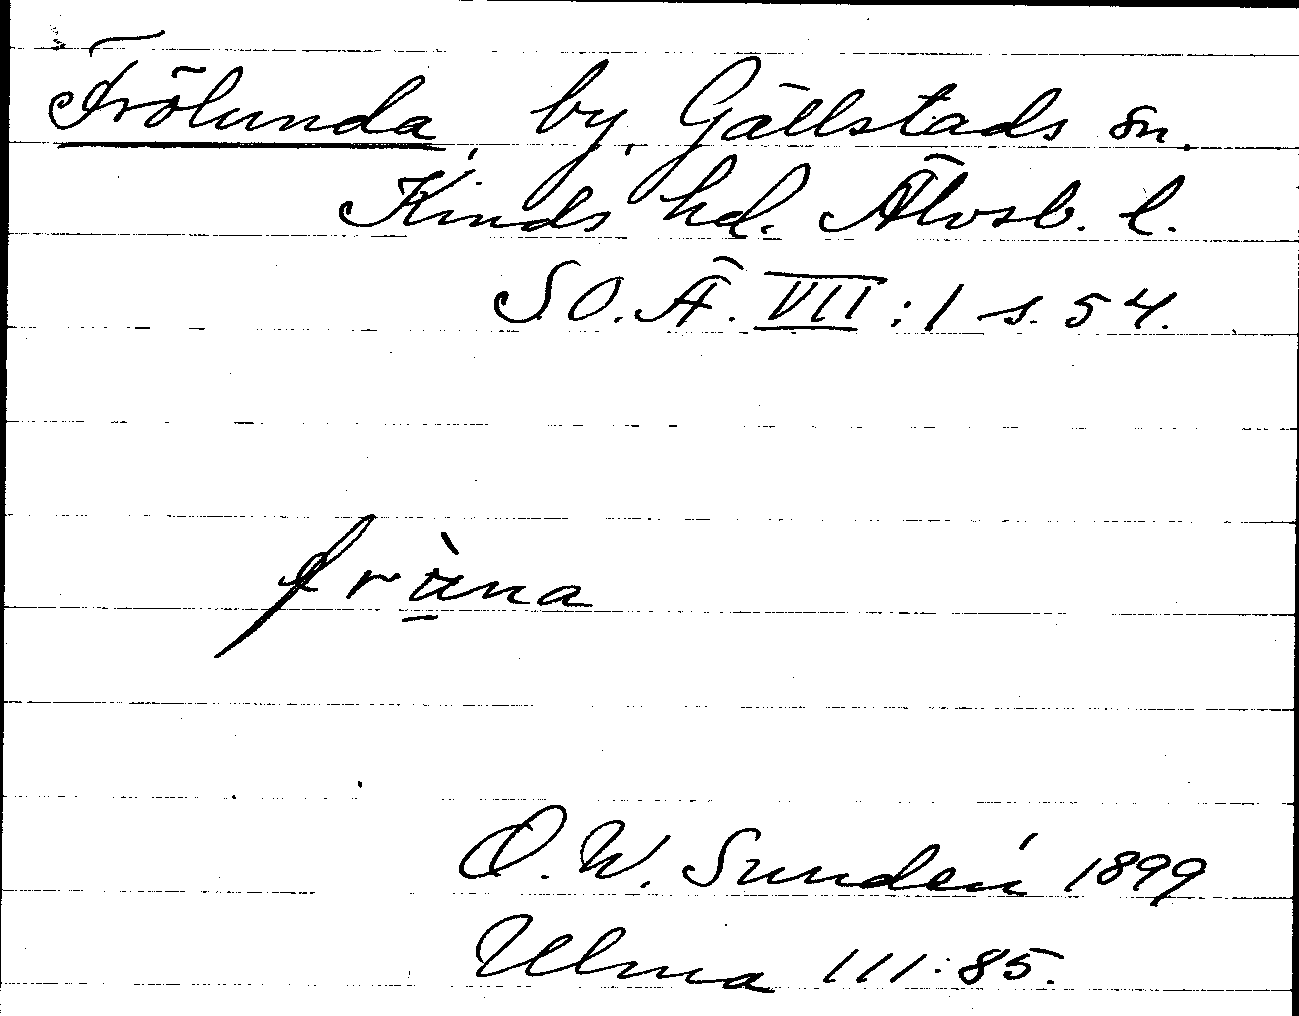 Frölunda, by, Gällstads sn,
Kinds hd. Älvsb. l.
SO. Ä. VII : 1 s. 54.
fräna
O. W. Sundén 1899
Ulma 111:85.